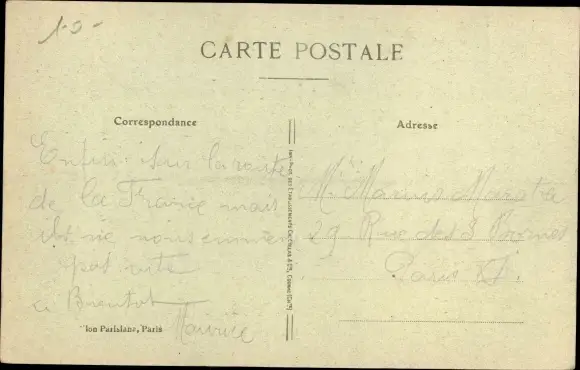 1-0-
CARTE POSTALE
Correspondance
Adresse
Enfin sur la route
de la France mais
ils ne nous
pas vite
a Bientot
Maurice
ion Parisiene, Paris
Mr Marius
29 Rue des 3 Bornes
Paris XI.